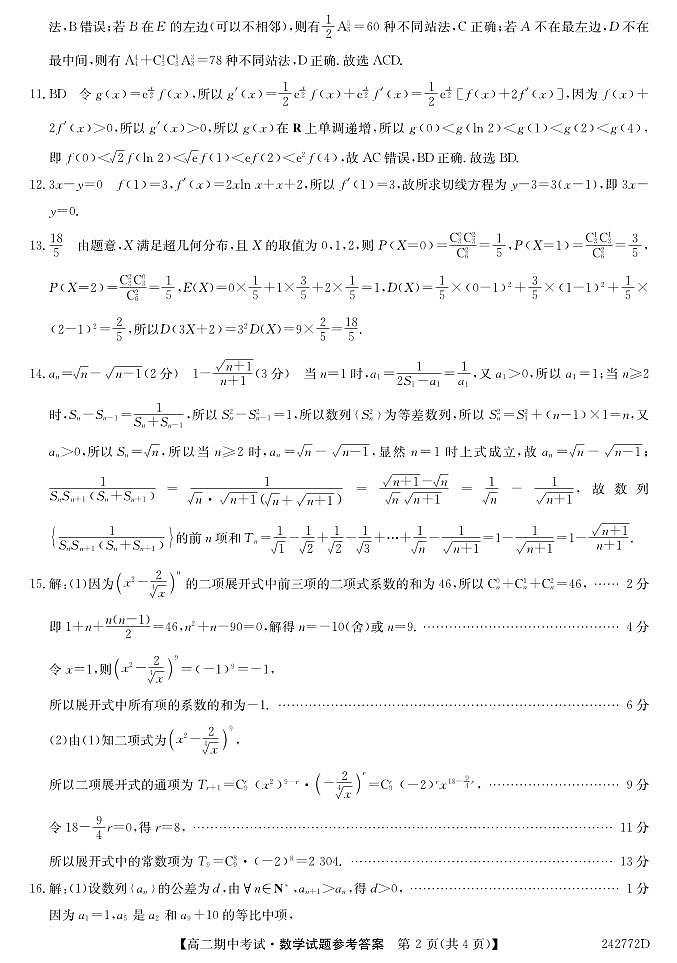 法,B错误;若B在E的左边(可以不相邻),则有1/2A₅⁵=60种不同站法,C正确;若A不在最左边,D不在
最中间,则有A₄⁴+C₃¹C₃¹A₃³=78种不同站法,D正确.故选ACD.
11.BD 令g(x)=e^{x/2}f(x),所以g′(x)=1/2e^{x/2}f(x)+e^{x/2}f′(x)=1/2e^{x/2}[f(x)+2f′(x)],因为f(x)+
2f′(x)>0,所以g′(x)>0,所以g(x)在R上单调递增,所以g(0)<g(ln 2)<g(1)<g(2)<g(4),
即f(0)<√2f(ln 2)<√e f(1)<ef(2)<e²f(4),故AC错误,BD正确.故选BD.
12.3x-y=0 f(1)=3,f′(x)=2xln x+x+2,所以f′(1)=3,故所求切线方程为y-3=3(x-1),即3x-
y=0.
13.18/5 由题意,X满足超几何分布,且X的取值为0,1,2,则P(X=0)=C₃⁰C₃²/C₆²=1/5,P(X=1)=C₃¹C₃¹/C₆²=3/5,
P(X=2)=C₃²C₃⁰/C₆²=1/5,E(X)=0×1/5+1×3/5+2×1/5=1,D(X)=1/5×(0-1)²+3/5×(1-1)²+1/5×
(2-1)²=2/5,所以D(3X+2)=3²D(X)=9×2/5=18/5.
14.aₙ=√n-√(n-1)(2分) 1-√(n+1)/(n+1)(3分) 当n=1时,a₁=1/(2S₁-a₁)=1/a₁,又a₁>0,所以a₁=1;当n≥2
时,Sₙ-Sₙ₋₁=1/(Sₙ+Sₙ₋₁),所以Sₙ²-Sₙ₋₁²=1,所以数列{Sₙ²}为等差数列,所以Sₙ²=S₁²+(n-1)×1=n,又
aₙ>0,所以Sₙ=√n,所以当n≥2时,aₙ=√n-√(n-1),显然n=1时上式成立,故aₙ=√n-√(n-1);
1/(SₙSₙ₊₁(Sₙ+Sₙ₊₁))=1/(√n·√(n+1)(√n+√(n+1)))=(√(n+1)-√n)/(√n√(n+1))=1/√n-1/√(n+1),故数列
{1/(SₙSₙ₊₁(Sₙ+Sₙ₊₁))}的前n项和Tₙ=1/√1-1/√2+1/√2-1/√3+…+1/√n-1/√(n+1)=1-1/√(n+1)=1-√(n+1)/(n+1).
15.解:(1)因为(x²-2/⁴√x)ⁿ的二项展开式中前三项的二项式系数的和为46,所以Cₙ⁰+Cₙ¹+Cₙ²=46,…… 2分
即1+n+n(n-1)/2=46,n²+n-90=0,解得n=-10(舍)或n=9.…… 4分
令x=1,则(x²-2/⁴√x)⁹=(-1)⁹=-1,
所以展开式中所有项的系数的和为-1.…… 6分
(2)由(1)知二项式为(x²-2/⁴√x)⁹,
所以二项展开式的通项为Tᵣ₊₁=C₉ʳ(x²)⁹⁻ʳ·(-2/⁴√x)ʳ=C₉ʳ(-2)ʳx^{18-9/4r},…… 9分
令18-9/4r=0,得r=8,…… 11分
所以展开式中的常数项为T₉=C₉⁸·(-2)⁸=2 304.…… 13分
16.解:(1)设数列{aₙ}的公差为d,由∀n∈N*,aₙ₊₁>aₙ,得d>0,…… 1分
因为a₁=1,a₅是a₂和a₉+10的等比中项,
【高二期中考试·数学试题参考答案 第2页(共4页)】 242772D